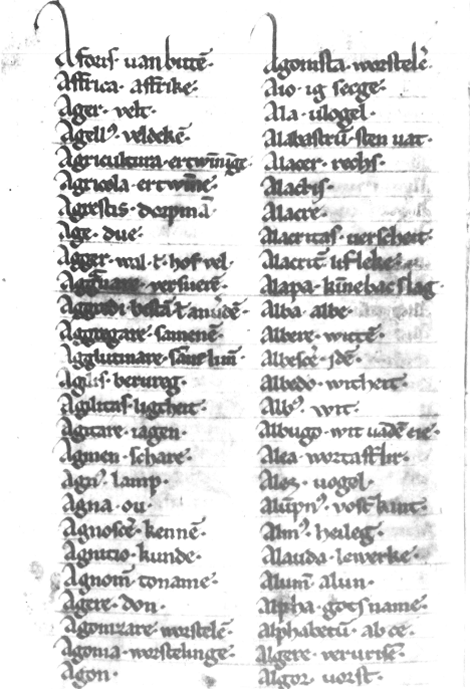 Aforis · uan butē ·
Affrica · affrike ·
Ager · velt ·
Agellꝰ · veldekē ·
Agricultura · ertwīnīge
Agricola · ertwīne ·
Agrestis · dorpmā
Age · due ·
Agger · wal · t · hof vel ·
Aggredi ·
Aggregare · samenē ·
Agglutinare ·
Agilis ·
Agilitas · ligtheit ·
Agitare · iagen ·
Agmen · schare ·
Agnꝰ · lamp ·
Agna · ou ·
Agnoscē · kennē ·
Agnitio · kunde ·
Agnom̄ · toname ·
Agere · don ·
Agonizare · worstelē ·
Agonia · worstelinge ·
Agon ·
Agonista · worstelē ·
Aio · ig secge ·
Ala · vlogel ·
Alabastrū · sten uat ·
Alacer · rechs ·
Alacris ·
Alacre ·
Alacritas · uerscheit ·
Alacrit̄ · lifleke ·
Alapa · kīnebac slag
Alba · albe ·
Albere · wittē ·
Albescē · idē ·
Albedo · witheit ·
Albꝰ · wit ·
Albugo · wit uādē eie ·
Alea · wortaffel ·
Ales · uogel ·
Almꝰ · heileg ·
Alauda · lewerke ·
Alum̄ · alun ·
Alpha · gots name ·
Alphabetū · ab ce ·
Algere · vervrisē ·
Algor · uorst ·